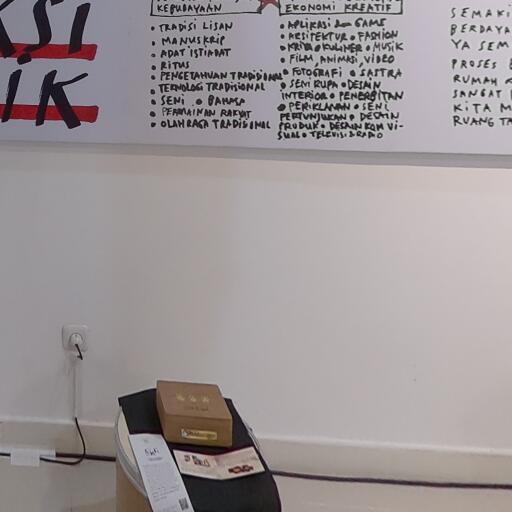 KSI
IK
KEBUDAYAAN
• TRADISI LISAN
• MANUSKRIP
• ADAT ISTIADAT
• RITUS
• PENGETAHUAN TRADISIONAL
• TEKNOLOGI TRADISIONAL
• SENI • BAHASA
• PERMAINAN RAKYAT
• OLAHRAGA TRADISIONAL
EKONOMI KREATIF
• APLIKASI GAME
• ARSITEKTUR • FASHION
• KRIYA • KULINER • MUSIK
• FILM, ANIMASI, VIDEO
• FOTOGRAFI • SASTRA
• SENI RUPA • DESAIN
INTERIOR • PENERBITAN
• PERIKLANAN • SENI
PERTUNJUKAN • DESAIN
PRODUK • DESAIN KOM VI-
SUAL • TELEVISI & RADIO
SEMAKI
BERDAYA
YA SEM
PROSES
RUMAH
SANGAT
KITA M
RUANG TA